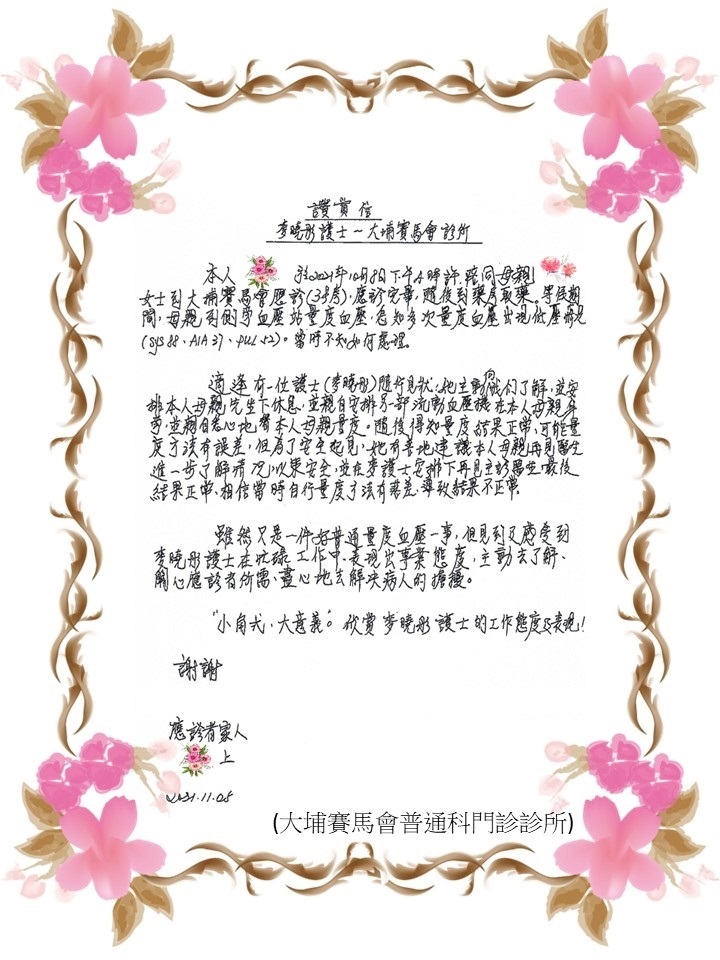 讚賞信
麥曉彤護士～大埔賽馬會診所
本人 於2021年10月8日下午4時許，陪同母親
女士到大埔賽馬會應診(38房)，應診完畢，隨後到藥房取藥。等侯期
間，母親到側旁血壓站量度血壓，怎知多次量度血壓出現低壓情況
(SYS 88、DIA 37、PUL 52)。當時不知如何處理。
適逢有一位護士(麥曉彤)隨行見狀，她主動向我们了解，並安
排本人母親先坐下休息，並親自安排另一部流動血壓機在本人母親身
旁，並親自悉心地幫本人母親量度。隨後得知量度結果正常，可能量
度方法有誤差，但為了安全起見，她有善地建議本人母親再見醫生
進一步了解情況，以策安全，並在麥護士安排下再見主診醫生，最後
結果正常，相信當時自行量度方法有誤差，導致結果不正常。
雖然只是一件好普通量度血壓一事，但見到及感受到
麥曉彤護士在忙碌工作中，表現出專業態度，主動去了解、
關心應診者所需，盡心地去解決病人的擔憂。
"小角式，大意義"。欣賞麥曉彤護士的工作態度及表現！
謝謝
應診者家人
上
2021.11.08
(大埔賽馬會普通科門診診所)